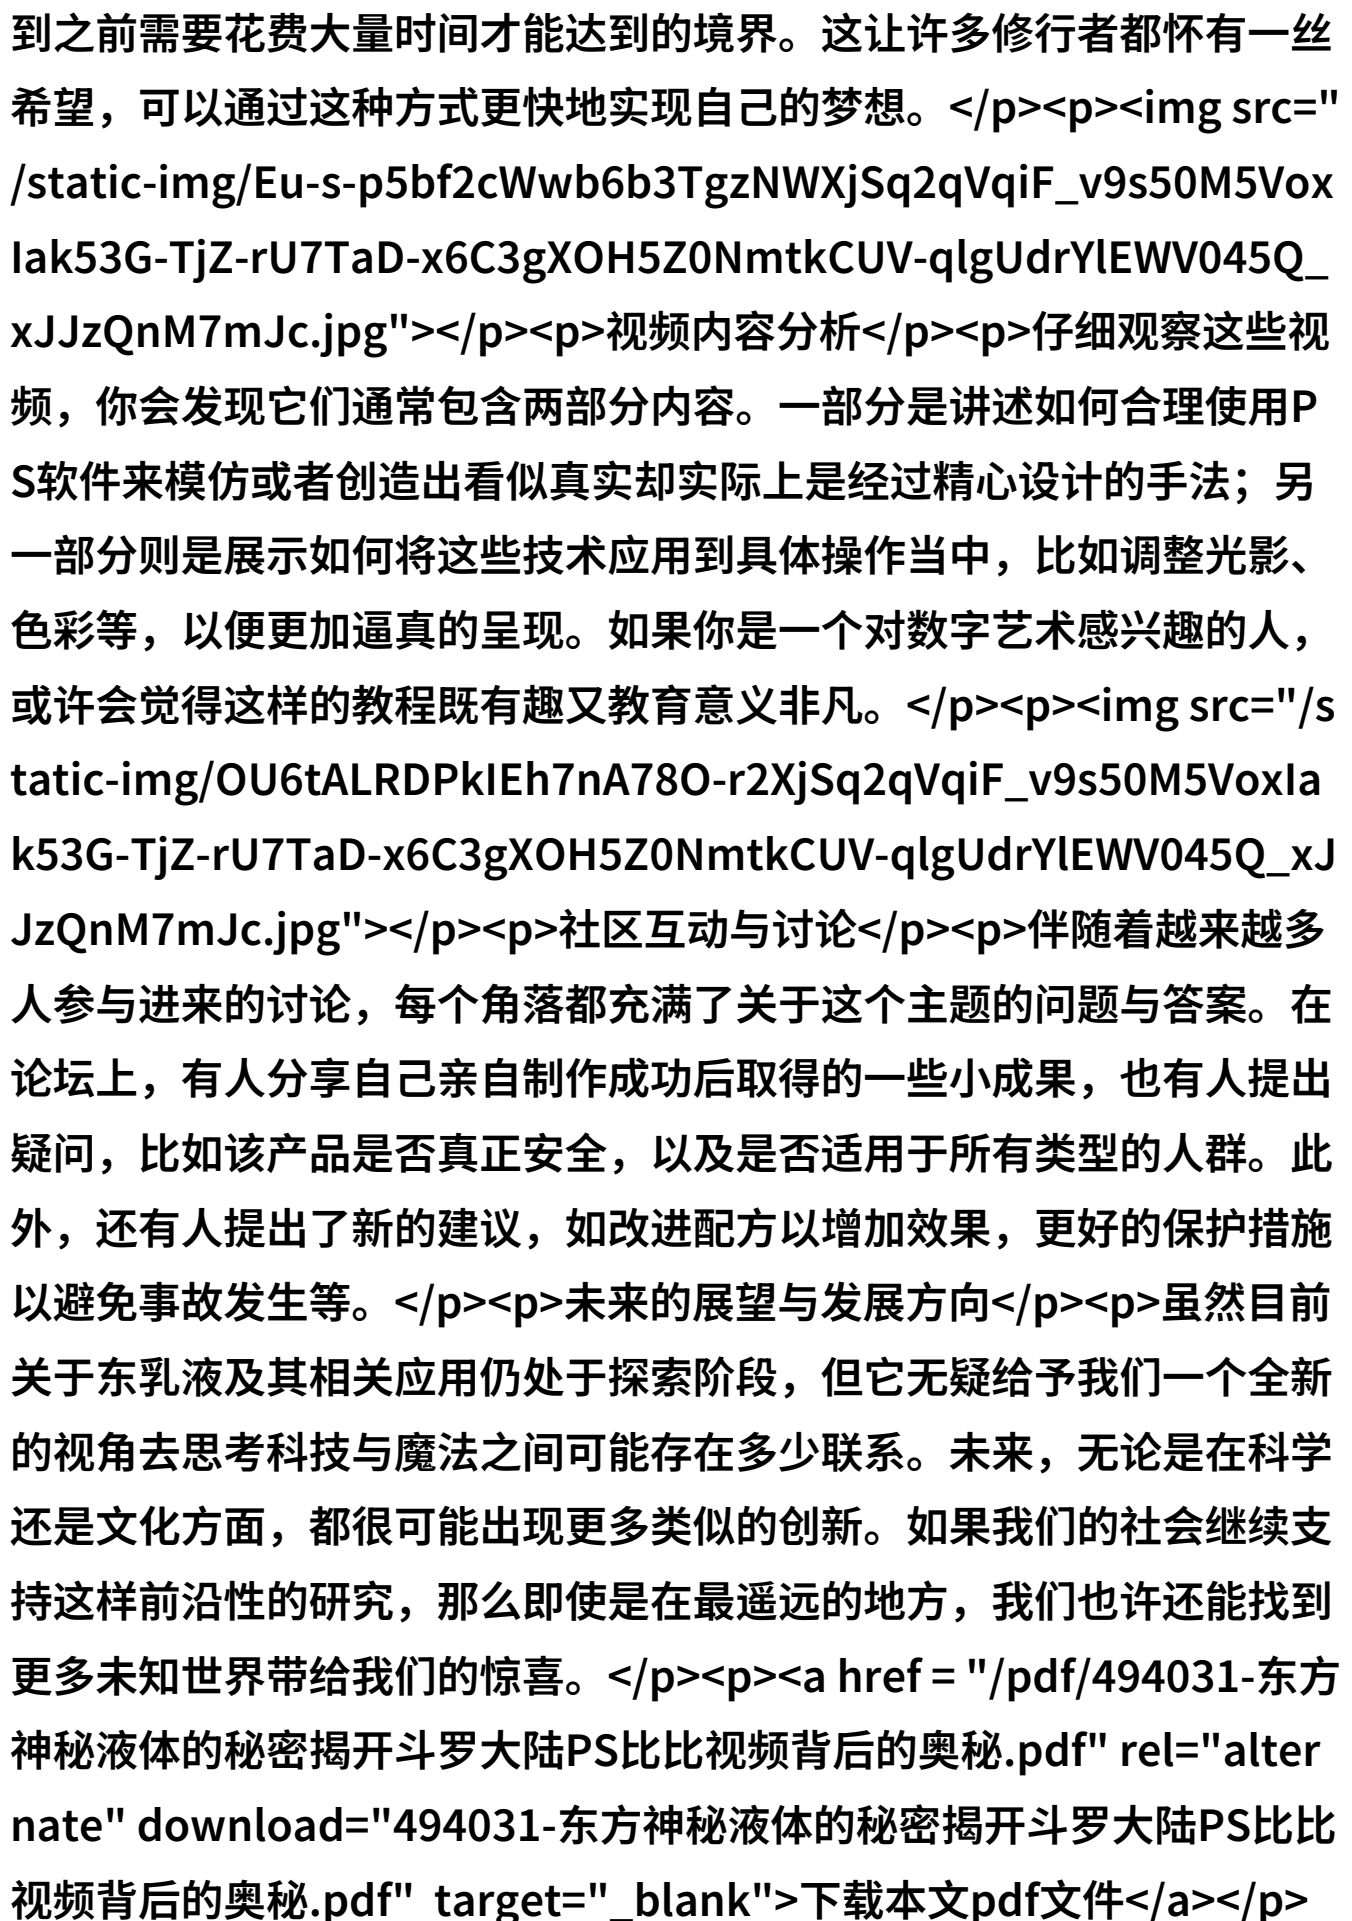 到之前需要花费大量时间才能达到的境界。这让许多修行者都怀有一丝
希望，可以通过这种方式更快地实现自己的梦想。</p><p><img src="
/static-img/Eu-s-p5bf2cWwb6b3TgzNWXjSq2qVqiF_v9s50M5Vox
Iak53G-TjZ-rU7TaD-x6C3gXOH5Z0NmtkCUV-qlgUdrYlEWV045Q_
xJJzQnM7mJc.jpg"></p><p>视频内容分析</p><p>仔细观察这些视
频，你会发现它们通常包含两部分内容。一部分是讲述如何合理使用P
S软件来模仿或者创造出看似真实却实际上是经过精心设计的手法；另
一部分则是展示如何将这些技术应用到具体操作当中，比如调整光影、
色彩等，以便更加逼真的呈现。如果你是一个对数字艺术感兴趣的人，
或许会觉得这样的教程既有趣又教育意义非凡。</p><p><img src="/s
tatic-img/OU6tALRDPkIEh7nA78O-r2XjSq2qVqiF_v9s50M5VoxIa
k53G-TjZ-rU7TaD-x6C3gXOH5Z0NmtkCUV-qlgUdrYlEWV045Q_xJ
JzQnM7mJc.jpg"></p><p>社区互动与讨论</p><p>伴随着越来越多
人参与进来的讨论，每个角落都充满了关于这个主题的问题与答案。在
论坛上，有人分享自己亲自制作成功后取得的一些小成果，也有人提出
疑问，比如该产品是否真正安全，以及是否适用于所有类型的人群。此
外，还有人提出了新的建议，如改进配方以增加效果，更好的保护措施
以避免事故发生等。</p><p>未来的展望与发展方向</p><p>虽然目前
关于东乳液及其相关应用仍处于探索阶段，但它无疑给予我们一个全新
的视角去思考科技与魔法之间可能存在多少联系。未来，无论是在科学
还是文化方面，都很可能出现更多类似的创新。如果我们的社会继续支
持这样前沿性的研究，那么即使是在最遥远的地方，我们也许还能找到
更多未知世界带给我们的惊喜。</p><p><a href = "/pdf/494031-东方
神秘液体的秘密揭开斗罗大陆PS比比视频背后的奥秘.pdf" rel="alter
nate" download="494031-东方神秘液体的秘密揭开斗罗大陆PS比比
视频背后的奥秘.pdf"  target="_blank">下载本文pdf文件</a></p>